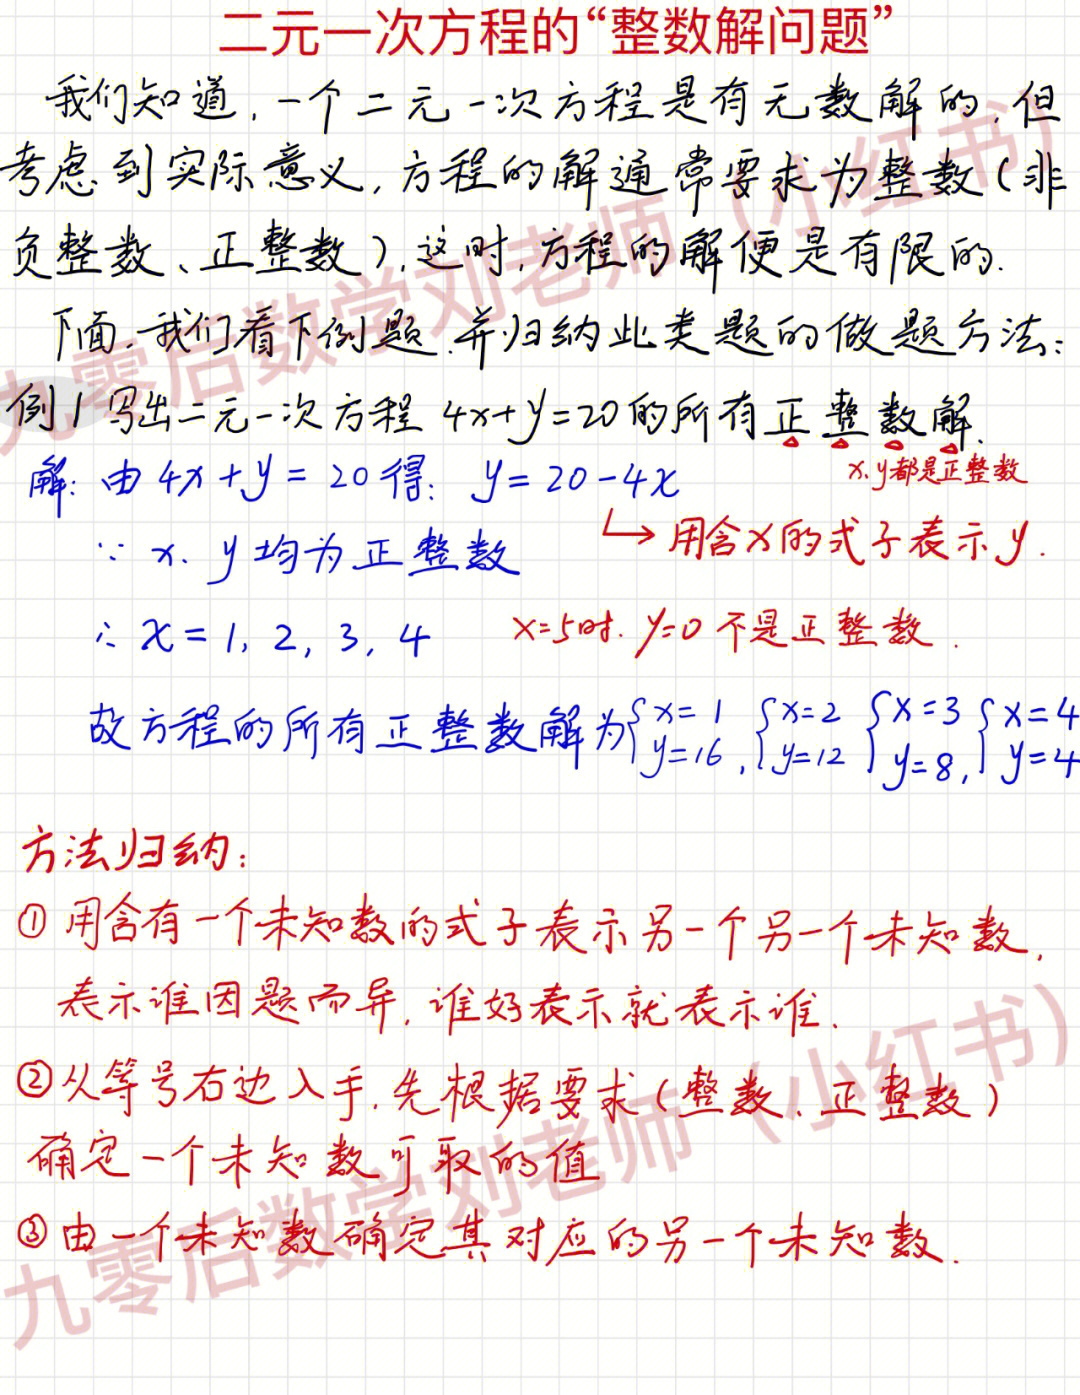 二元一次方程的“整数解问题”
我们知道,一个二元一次方程是有无数解的,但
考虑到实际意义,方程的解通常要求为整数(非
负整数、正整数),这时,方程的解便是有限的.
下面,我们看下例题,并归纳此类题的做题方法:
例1 写出二元一次方程 4x+y=20的所有正整数解.
x、y都是正整数
解:由 4x+y=20得: y=20-4x
↳ 用含x的式子表示y.
∵ x、y均为正整数
∴ x=1, 2, 3, 4
x=5时. y=0 不是正整数.
故方程的所有正整数解为{x=1 y=16, {x=2 y=12 {x=3 y=8, {x=4 y=4
方法归纳:
① 用含有一个未知数的式子表示另一个另一个未知数,
表示谁因题而异,谁好表示就表示谁.
② 从等号右边入手,先根据要求(整数、正整数)
确定一个未知数可取的值
③ 由一个未知数确定其对应的另一个未知数.
九零后数学刘老师(小红书)
九零后数学刘老师(小红书)